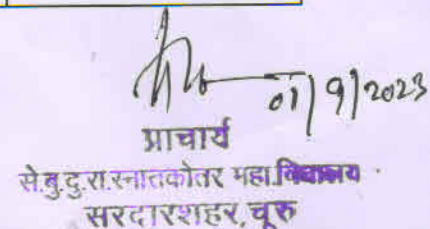 01/9/2023
प्राचार्य
से.बु.दु.रा.स्नातकोतर महा.विद्यालय
सरदारशहर, चूरु